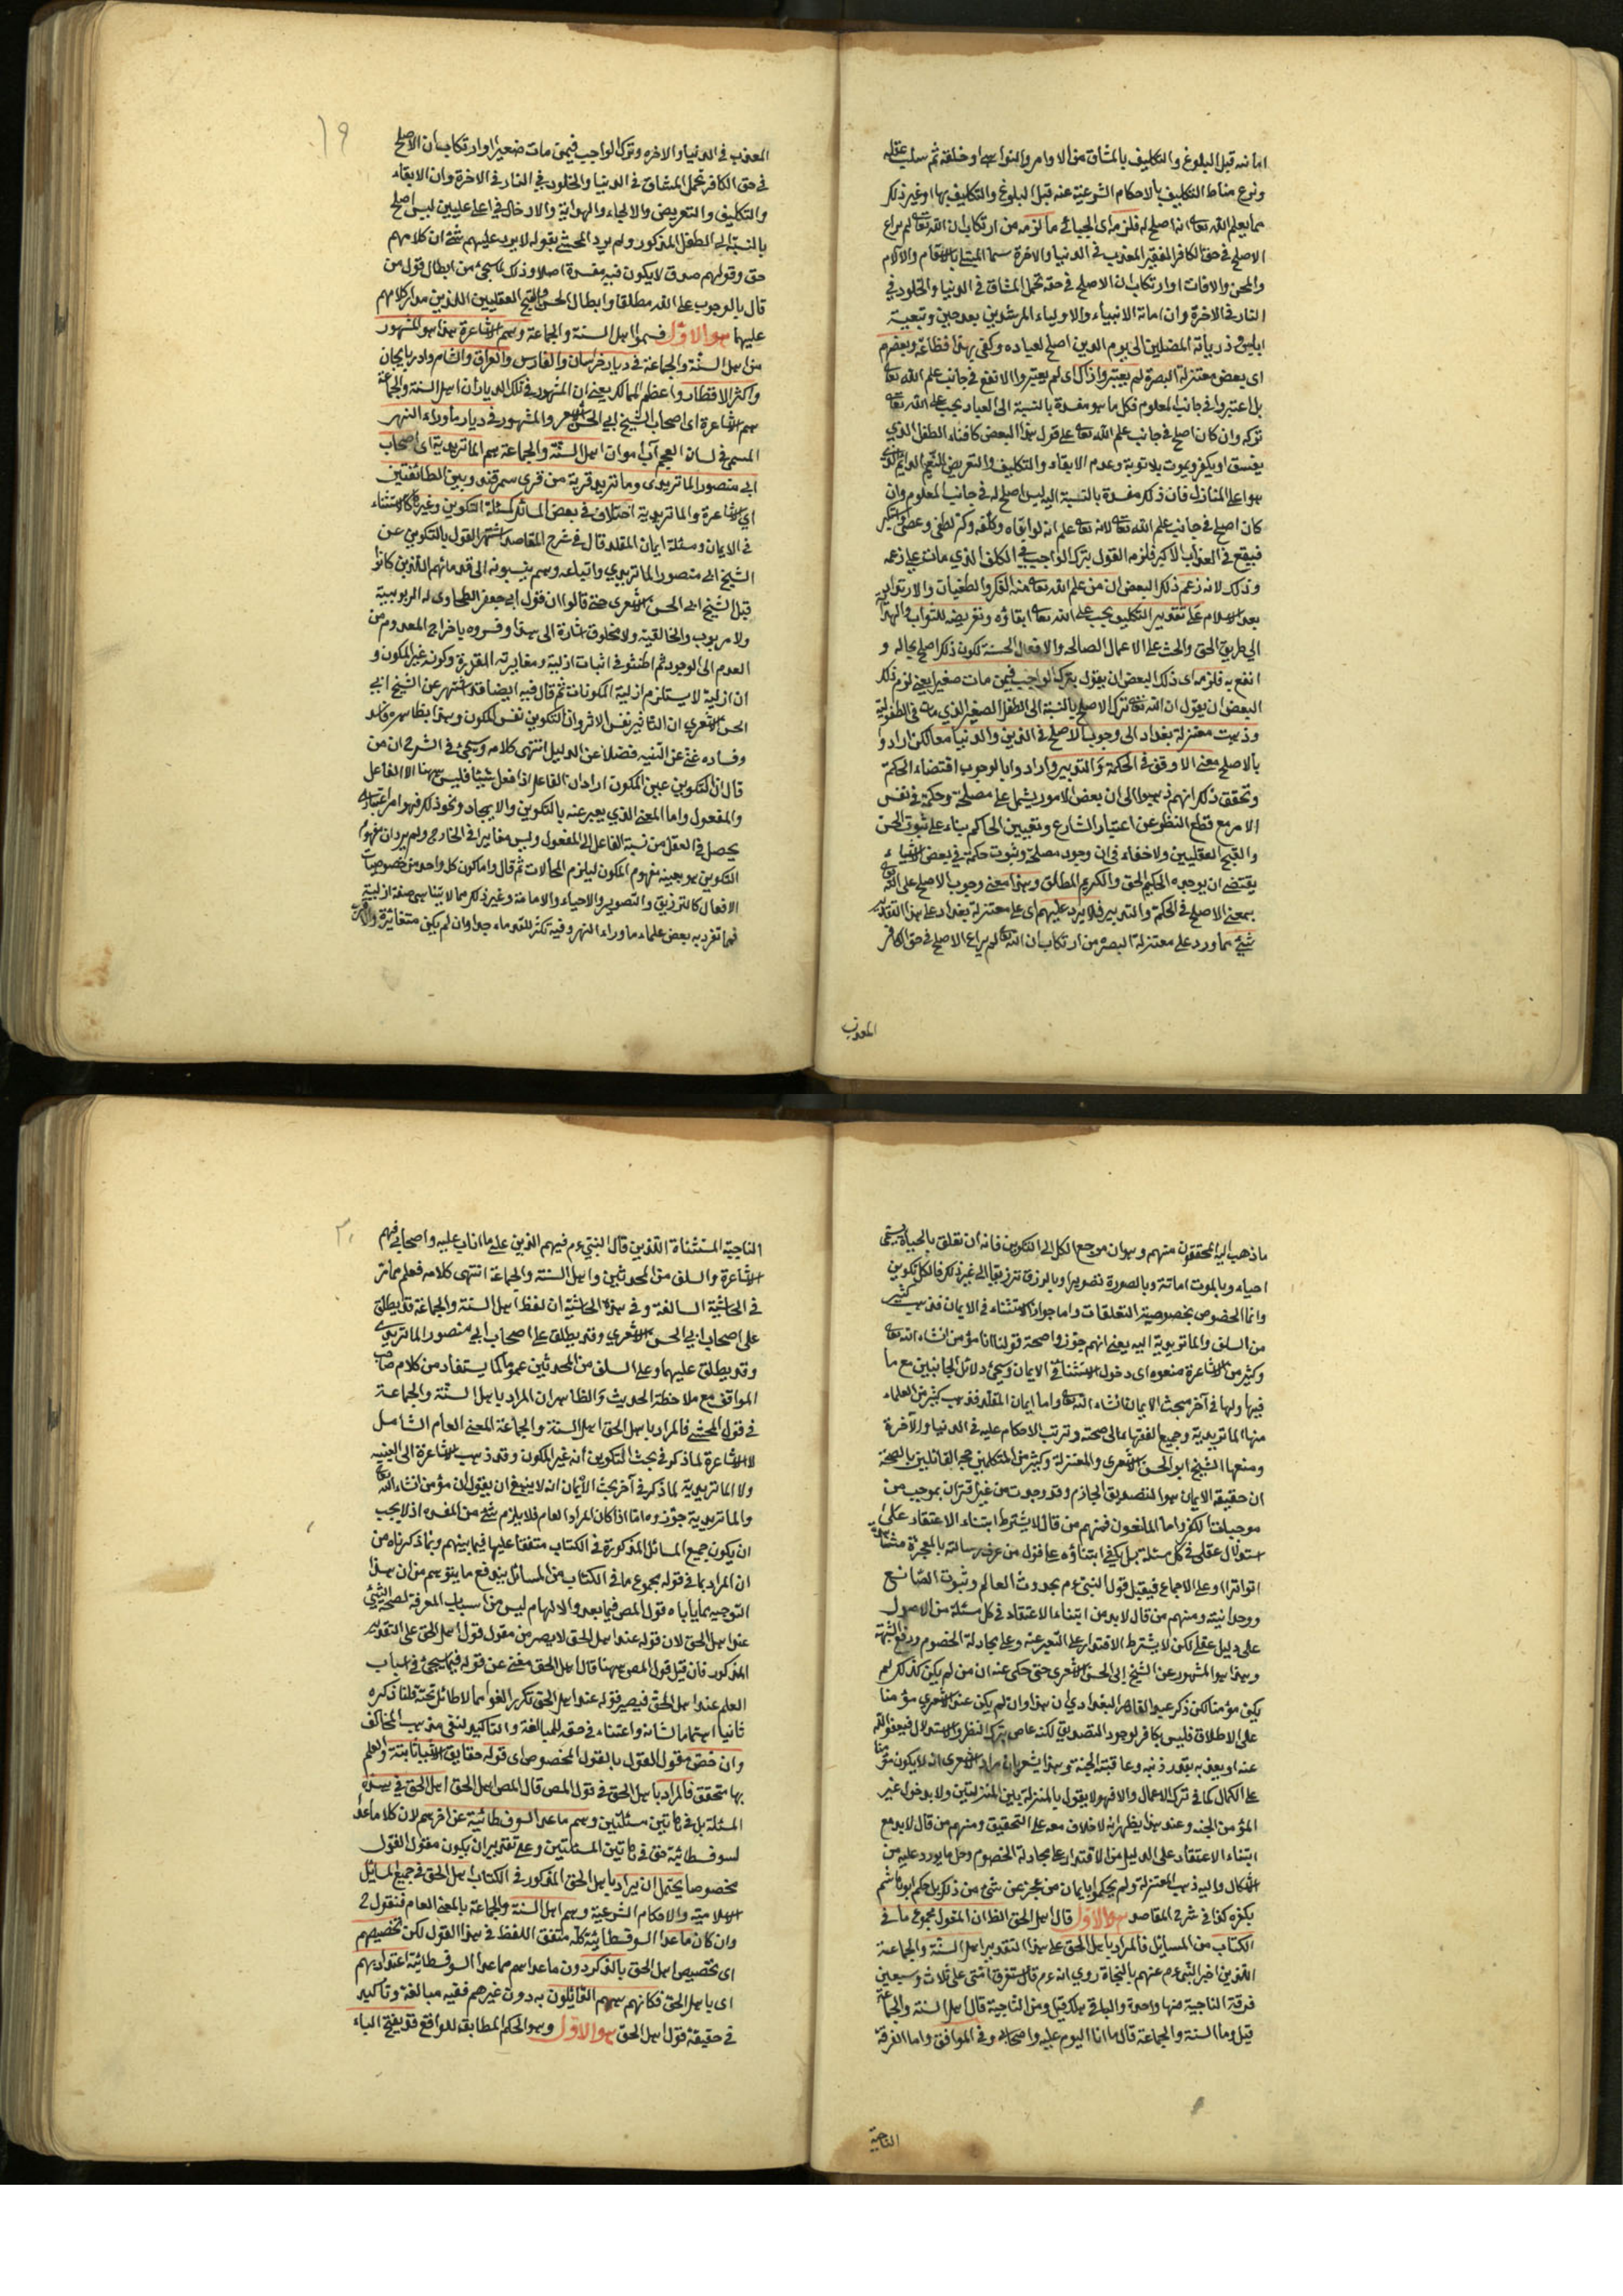 اماتته قبل البلوغ والتكليف بالمشاق من الاوامر والنواهي او خلقه ثم سلب عقله
ونزع مناط التكليف بالاحكام الشرعية عنه قبل البلوغ والتكليف بها او غير ذلك
مما يعلم الله تعالى انه اصلح له فلزمه اى الجبائي ما لزمه من ارتكاب ان الله تعالى لم يراع
الاصلح في حق الكافر الفقير المعذب في الدنيا والاخرة سيما المبتلى بالاسقام والآلام
والمحن والافات او ارتكاب ان الاصلح في حقه تحمل المشاق في الدنيا والخلود في
النار في الاخرة وان اماتة الانبياء والاولياء المرشدين بعد حين وتبعية
ابليس وذرياته المضلين الى يوم الدين اصلح لعباده وكفى بهذا فظاعة وبعضهم
اى بعض معتزلة البصرة لم يعتبر واذاك اى لم يعتبروا الانفع في جانب علم الله تعالى
بل اعتبروا في جانب المعلوم فكل ما هو مفسدة بالنسبة الى العباد يجب على الله تعالى
تركه وان كان اصلح في جانب علم الله تعالى على قول هذا البعض كافناء الطفل الذي
يفسق او يكفر ويموت بلا توبة وعدم الابقاء والتكليف والتعريض للنعيم الدائم الذي
هو اعلى المنازل فان ذلك مفسدة بالنسبة اليه ليس اصلح له في جانب المعلوم وان
كان اصلح في جانب علم الله تعالى لانه تعالى علم انه لو ابقاه وكلفه وكبر لطغى وعصى واستكبر
فيقع في العذاب الاكبر فلزم القول بترك الواجب في المكلف الذي مات على زعمه
وذلك لانه زعم ذلك البعض ان من علم الله تعالى منه الكفر والطغيان والارتداد
بعد الاسلام على تقدير التكليف يجب على الله تعالى ابقاؤه وتعريضه للثواب والهداية
الى طريق الحق والحث على الاعمال الصالحة والافعال الحسنة لكون ذلك اصلح بحاله و
انفع به فلزمه اى ذلك البعض ان يقول بترك الواجب فيمن مات صغيرا يعني لزم ذلك
البعض ان يقول ان الله تعالى ترك الاصلح بالنسبة الى الطفل الصغير الذي مات في الطفولية
وذهبت معتزلة بغداد الى وجوب الاصلح في الدين والدنيا معا لكن ارادوا
بالاصلح معنى الاوفق في الحكمة والتدبير وارادوا بالوجوب اقتضاء الحكمة
وتحقق ذلك انهم ذهبوا الى ان بعض الامور يشمل على مصلحة وحكمة في نفس
الامر مع قطع النظر عن اعتبار الشارع وتعيين الحاكم بناء على ثبوت الحسن
والقبح العقليين ولا خفاء في ان وجود مصلحة وثبوت حكمة في بعض الاشياء
يقتضي ان يوجده الحكيم الحق والكريم المطلق وهذا معنى وجوب الاصلح على الله تعالى
بمعنى الاصلح في الحكمة والتدبير فلا يرد عليهم اى على معتزلة بغداد على هذا التقدير
شيئ مما ورد على معتزلة البصره من ارتكاب ان الله تعالى لم يراع الاصلح في حق الكافر
المعذب
١٩
المعذب في الدنيا والاخره وترك الواجب فيمن مات صغيرا او ارتكاب ان الاصلح
في حق الكافر تحمل المشاق في الدنيا والخلود في النار في الاخرة وان الابقاء
والتكليف والتعريض والالجاء والهداية والادخال في اعلا عليين ليس اصلح
بالنسبة الى الطفل المذكور ولم يرد المحشي بقوله لا يرد عليهم شئ ان كلامهم
حق وقولهم صدق لا يكون فيه مفسدة اصلا وذلك لما سيجئ من ابطال قول من
قال بالوجوب على الله مطلقا وابطال الحسن والقبح العقليين اللذين مدار كلامهم
عليهما هو الاول فسموا اهل السنة والجماعة وهم الاشاعرة هذا هو المشهور
من اهل السنة والجماعة في ديار خراسان والفارس والعراق والشام وادربايجان
واكثر الاقطار واعظم الممالك يعني ان المشهور في تلك الديار ان اهل السنة والجماعة
هم الاشاعرة اى اصحاب الشيخ ابي الحسن الاشعرى والمشهور في ديار ماوراء النهر
المسمى في لسان العجم آب امو ان اهل السنة والجماعة هم الماتريدية اى اصحاب
ابي منصور الماتريدى وماتريد قرية من قرى سمرقند وبين الطائفتين
اى الاشاعرة والماتريدية اختلاف في بعض المسائل كمسئلة التكوين وغيرها كالاستثناء
في الايمان ومسئلة ايمان المقلد قال في شرح المقاصد اشتهر القول بالتكوين عن
الشيخ ابي منصور الماتريدي واتباعه وهم ينسبونه الى قدمائهم الذين كانوا
قبل الشيخ ابي الحسن الاشعرى حتى قالوا ان قول ابي جعفر الطحاوى له الربوبية
ولا مربوب والخالقية ولا مخلوق اشارة الى هذا وفسروه باخراج المعدوم من
العدم الى الوجود ثم اطنبوا في اثبات ازليته ومغايرته للقدرة وكونه غير المكون و
ان ازليته لا يستلزم ازلية المكونات ثم قال فيه ايضا قد اشتهر عن الشيخ ابي
الحسن الاشعري ان التأثير نفس الاثر وان التكوين نفس المكون وهذا بظاهره فاسد
وفساده غني عن التنبيه فضلا عن الدليل انتهى كلامه وسيجئ في الشرح ان من
قال ان التكوين عين المكون اراد ان الفاعل اذا فعل شيئا فليس ههنا الا الفاعل
والمفعول واما المعنى الذي يعبر عنه بالتكوين والايجاد ونحو ذلك فهو امر اعتبارى
يحصل في العقل من نسبة الفاعل الى المفعول وليس مغايرا في الخارج ولم يرد ان مفهوم
التكوين هو بعينه مفهوم المكون ليلزم المحالات ثم قال واما كون كل واحد من خصوصيات
الافعال كالترزيق والتصوير والاحياء والاماتة وغير ذلك مما لا يتناهى صفة ازلية
فمما تفرد به بعض علماء ماوراء النهر وفيه تكثر للقدماء جدا وان لم يكن متغايرة والاقرب
ما ذهب اليه المحققون منهم وهو ان مرجع الكل الى التكوين فانه ان تعلق بالحياة يسمى
احياء وبالموت اماتة وبالصورة تصويرا وبالرزق ترزيقا الى غير ذلك فالكل تكوين
وانما الخصوص بخصوصية التعلقات واما جواز الاستثناء في الايمان فذهب كثير
من السلف والماتريدية اليه يعني انهم جوزوا صحة قولنا انا مؤمن ان شاء الله تعالى
وكثير من الاشاعرة منعوه اى دخول الاستثناء في الايمان وسيجئ دلائل الجانبين مع ما
فيها ولها في آخر مبحث الايمان ان شاء الله تعالى واما ايمان المقلد فذهب كثير من العلماء
منها الماتريدية وجميع الفقهاء الى صحته وترتب الاحكام عليه في الدنيا والآخرة
ومنعها الشيخ ابو الحسن الاشعرى والمعتزلة وكثير من المتكلمين حجة القائلين بالصحة
ان حقيقة الايمان هو التصديق الجازم وقد وجدت من غير اقتران بموجب من
موجبات الكفر واما المانعون فمنهم من قال لا يشترط ابتناء الاعتقاد على
استدلال عقلى في كل مسئلة بل يكفي ابتناؤه على قول من عرف رسالته بالمعجزة مشاهدة
او تواترا او على الاجماع فيقبل قول النبي عم بحدوث العالم وثبوت الصانع
ووحدانيته ومنهم من قال لا بد من ابتناء الاعتقاد في كل مسئلة من الاصول
على دليل عقلي لكن لا يشترط الاقتدار على التعبير عنه وعلى مجادلة الخصوم ودفع الشبهة
وهذا هو المشهور عن الشيخ ابى الحسن الاشعرى حتى حكى عنه ان من لم يكن كذلك لم
يكن مؤمنا لكن ذكر عبد القاهر البغدادي ان هذا وان لم يكن عند الاشعري مؤمنا
على الاطلاق فليس بكافر لوجود التصديق لكنه عاص بترك النظر والاستدلال فيعفو الله
عنه او يعذبه بقدر ذنبه وعاقبته الجنة وهذا يشعر بان مراد الاشعرى انه لا يكون مؤمنا
على الكمال كما في ترك الاعمال والا فهو لا يقول بالمنزلة بين المنزلتين ولا بدخول غير
المؤمن الجنة وعند هذا يظهر انه لا خلاف معه على التحقيق ومنهم من قال لا بد مع
ابتناء الاعتقاد على الدليل من الاقتدار على مجادلة الخصوم وحل ما يورد عليه من
الاشكال واليه ذهب المعتزلة ولم يحكموا بايمان من عجز عن شئ من ذلك بل حكم ابو هاشم
بكفره كذا في شرح المقاصد هو الاول قال اهل الحق الظ ان المقول مجموع ما في
الكتاب من المسائل فالمراد باهل الحق على هذا التقدير اهل السنة والجماعة
الذين اخبر النبي عم عنهم بالنجاة روي انه عم قال ستفرق امتى على ثلاث وسبعين
فرقة الناجية منها واحدة والباقي هلك قيل ومن الناجية قال اهل السنة والجماعة
قيل وما السنة والجماعة قال ما انا اليوم عليه واصحابى وفي المواقف واما الفرقة
الناجية
٢٠
الناجية المستثناة الذين قال النبي عم فيهم الذين على ما انا عليه واصحابي فهم
الاشاعرة والسلف من المحدثين واهل السنة والجماعة انتهى كلامه فعلم مما مر
في الحاشية السالفة وفي هذه الحاشية ان لفظ اهل السنة والجماعة قد يطلق
على اصحاب ابي الحسن الاشعري وقد يطلق على اصحاب ابي منصور الماتريدي
وقد يطلق عليهما وعلى السلف من المحدثين عموما كما يستفاد من كلام صاحب
المواقف مع ملاحظة الحديث والظاهر ان المراد باهل السنة والجماعة
في قول المحشي فالمراد باهل الحق اهل السنة والجماعة المعنى العام الشامل
لا الاشاعرة لما ذكر في بحث التكوين انه غير المكون وقد ذهب الاشاعرة الى العينية
ولا الماتريدية لما ذكر في آخر بحث الايمان انه لا ينبغي ان يقول ان مؤمن ان شاء الله تعالى
والماتريدية جوزوه اما اذا كان المراد العام فلا يلزم شئ من المفسدة اذ لا يجب
ان يكون جميع المسائل المذكورة في الكتاب متفقا عليها فيما بينهم وبما ذكرناه من
ان المراد بما في قوله مجموع ما في الكتاب من المسائل يندفع ما يتوهم من ان هذا
التوجيه مما يأباه قول المص فيما بعد والالهام ليس من اسباب المعرفة لصحة الشئ
عند اهل الحق لان قوله عند اهل الحق لا يصير من مقول قول اهل الحق على التقدير
المذكور فان قيل قول المص ههنا قال اهل الحق مغني عن قوله فيما سيجئ في اسباب
العلم عند اهل الحق فيصير قوله عند اهل الحق تكرير الغوا مما لا طائل تحته قلنا ذكره
ثانيا اهتماما لشانه واعتناء في حقه للمبالغة والتاكيد لنفى مذهب المخالف
وان خص مقول القول بالقول المخصوص اى قوله حقايق الاشياء ثابتة والعلم
بها متحقق فالمراد باهل الحق في قول المص قال المص اهل الحق اهل الحق في هذه
المسئلة بل في هاتين مسئلتين وهم ما عدا السوفسطائية عن اخرهم لان كلا ما عدا
لسوفسطائية حق في هاتين المسئلتين وعلى تقدير ان يكون مقول القول
مخصوصا يحتمل ان يراد باهل الحق المذكور في الكتاب اهل الحق في جميع المسائل
الاسلامية والاحكام الشرعية وهم اهل السنة والجماعة بالمعنى العام فنقول ح
وان كان ما عدا السوفسطائية كله متفق اللفظ في هذا القول لكن تخصيصهم
اى تخصيص اهل الحق بالذكر دون ما عداهم مما عدا السوفسطائية اعتداد بهم
اى باهل الحق فكانهم هم القائلون به دون غيرهم ففيه مبالغة وتأكيد
في حقيقة قول اهل الحق هو الاول وهو الحكم المطابقة للواقع قد يفتح الباء